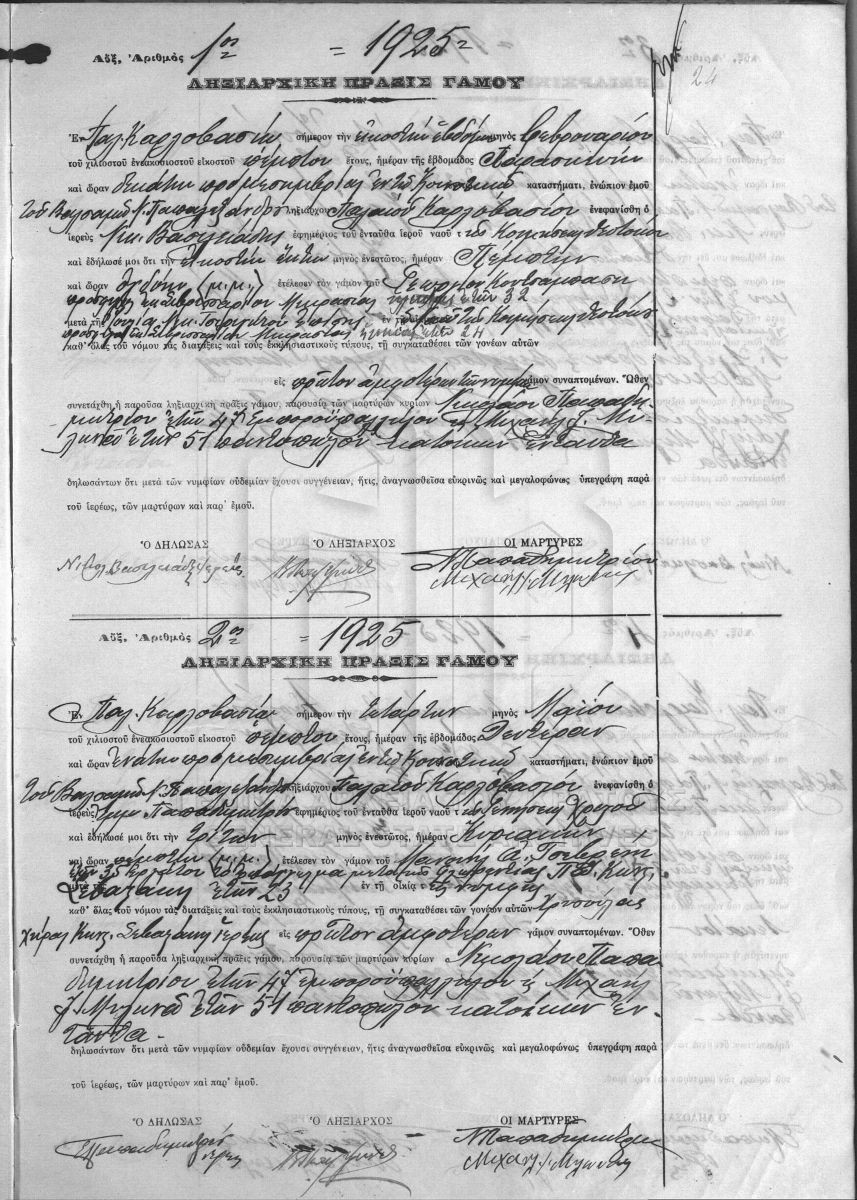 Αὔξ. Ἀριθμὸς 1ον = 1925 =
ΛΗΞΙΑΡΧΙΚΗ ΠΡΑΞΙΣ ΓΑΜΟΥ
24
Ἐν Παλ. Καρλοβασίῳ σήμερον τὴν εἰκοστὴν ἑβδόμην μηνὸς Φεβρουαρίου
τοῦ χιλιοστοῦ ἐνεακοσιοστοῦ εἰκοστοῦ πέμπτου ἔτους, ἡμέραν τῆς ἑβδομάδος Παρασκευὴν
καὶ ὥραν δεκάτην προμεσημβρίας ἐν τῷ Κοινοτικῷ καταστήματι, ἐνώπιον ἐμοῦ
τοῦ Βαλσαμῆ Ν. Παπαλεξάνδρου ληξιάρχου Παλαιοῦ Καρλοβασίου ἐνεφανίσθη ὁ
ἱερεὺς Νικ. Βασιλειάδης ἐφημέριος τοῦ ἐνταῦθα ἱεροῦ ναοῦ τῆς Κοιμήσεως Θεοτόκου
καὶ ἐδήλωσέ μοι ὅτι τὴν εἰκοστὴν ἕκτην μηνὸς ἐνεστῶτος, ἡμέραν Πέμπτην
καὶ ὥραν ὀγδόην (μ.μ.) ἐτέλεσεν τὸν γάμον τοῦ Γεωργίου
πρόσφυγος Μικρασίας ἡλικίας ἐτῶν 32
μετὰ τῆς Νικ. ἐν τῷ Κοιμήσεως Θεοτόκου
Μικρασίας ἡλικίας ἐτῶν 24
καθ' ὅλας τοῦ νόμου τὰς διατάξεις καὶ τοὺς ἐκκλησιαστικοὺς τύπους, τῇ συγκαταθέσει τῶν γονέων αὐτῶν
εἰς πρῶτον ἀμφοτέρων τῶν γάμον συναπτομένων. Ὅθεν
συνετάχθη ἡ παροῦσα ληξιαρχικὴ πρᾶξις γάμου, παρουσίᾳ τῶν μαρτύρων κυρίων Νικολάου Παπαδη-
μητρίου ἐτῶν 47 ἐμποροϋπαλλήλου & Μιχαὴλ Γ. Μυ-
λωνᾶ ἐτῶν 51 παντοπώλου κατοίκων ἐνταῦθα
δηλωσάντων ὅτι μετὰ τῶν νυμφίων οὐδεμίαν ἔχουσι συγγένειαν, ἥτις, ἀναγνωσθεῖσα εὐκρινῶς καὶ μεγαλοφώνως ὑπεγράφη παρὰ
τοῦ ἱερέως, τῶν μαρτύρων καὶ παρ' ἐμοῦ.
Ὁ ΔΗΛΩΣΑΣ Ὁ ΛΗΞΙΑΡΧΟΣ ΟΙ ΜΑΡΤΥΡΕΣ
Νικόλ. Βασιλειάδης ἱερεὺς Ν Παπαδημητρίου
Μιχαὴλ Γ. Μυλωνᾶς
Αὔξ. Ἀριθμὸς 2ον = 1925
ΛΗΞΙΑΡΧΙΚΗ ΠΡΑΞΙΣ ΓΑΜΟΥ
Ἐν Παλ. Καρλοβασίῳ σήμερον τὴν τετάρτην μηνὸς Μαΐου
τοῦ χιλιοστοῦ ἐνεακοσιοστοῦ εἰκοστοῦ πέμπτου ἔτους, ἡμέραν τῆς ἑβδομάδος Δευτέραν
καὶ ὥραν ἐνάτην προμεσημβρίας ἐν τῷ Κοινοτικῷ καταστήματι, ἐνώπιον ἐμοῦ
τοῦ Βαλσαμῆ Ν. Παπαλεξάνδρου ληξιάρχου Παλαιοῦ Καρλοβασίου ἐνεφανίσθη ὁ
ἱερεὺς Παπαδημητρίου ἐφημέριος τοῦ ἐνταῦθα ἱεροῦ ναοῦ τῆς Γεννήσεως Χριστοῦ
καὶ ἐδήλωσέ μοι ὅτι τὴν τρίτην μηνὸς ἐνεστῶτος, ἡμέραν Κυριακὴν
καὶ ὥραν πέμπτην (μ.μ.) ἐτέλεσεν τὸν γάμον τοῦ Μανώλη
ἐτῶν 35 ἐργάτου τὸ ἐπάγγελμα μετὰ τῆς Κων.
Σεβαζάκη ἐτῶν 23 ἐν τῇ οἰκίᾳ τῆς νύμφης
καθ' ὅλας τοῦ νόμου τὰς διατάξεις καὶ τοὺς ἐκκλησιαστικοὺς τύπους, τῇ συγκαταθέσει τῶν γονέων αὐτῶν
χήρας Κων. Σεβαζάκη εἰς πρῶτον ἀμφοτέρων γάμον συναπτομένων. Ὅθεν
συνετάχθη ἡ παροῦσα ληξιαρχικὴ πρᾶξις γάμου, παρουσίᾳ τῶν μαρτύρων κυρίων Νικολάου Παπα
δημητρίου ἐτῶν 47 ἐμποροϋπαλλήλου & Μιχαὴλ
Γ. Μυλωνᾶ ἐτῶν 51 παντοπώλου κατοίκων ἐν-
ταῦθα.
δηλωσάντων ὅτι μετὰ τῶν νυμφίων οὐδεμίαν ἔχουσι συγγένειαν, ἥτις ἀναγνωσθεῖσα εὐκρινῶς καὶ μεγαλοφώνως ὑπεγράφη παρὰ
τοῦ ἱερέως, τῶν μαρτύρων καὶ παρ' ἐμοῦ.
Ὁ ΔΗΛΩΣΑΣ Ὁ ΛΗΞΙΑΡΧΟΣ ΟΙ ΜΑΡΤΥΡΕΣ
Παπαδημητρίου ἱερεὺς Ν Παπαδημητρίου
Μιχαὴλ Γ. Μυλωνᾶς